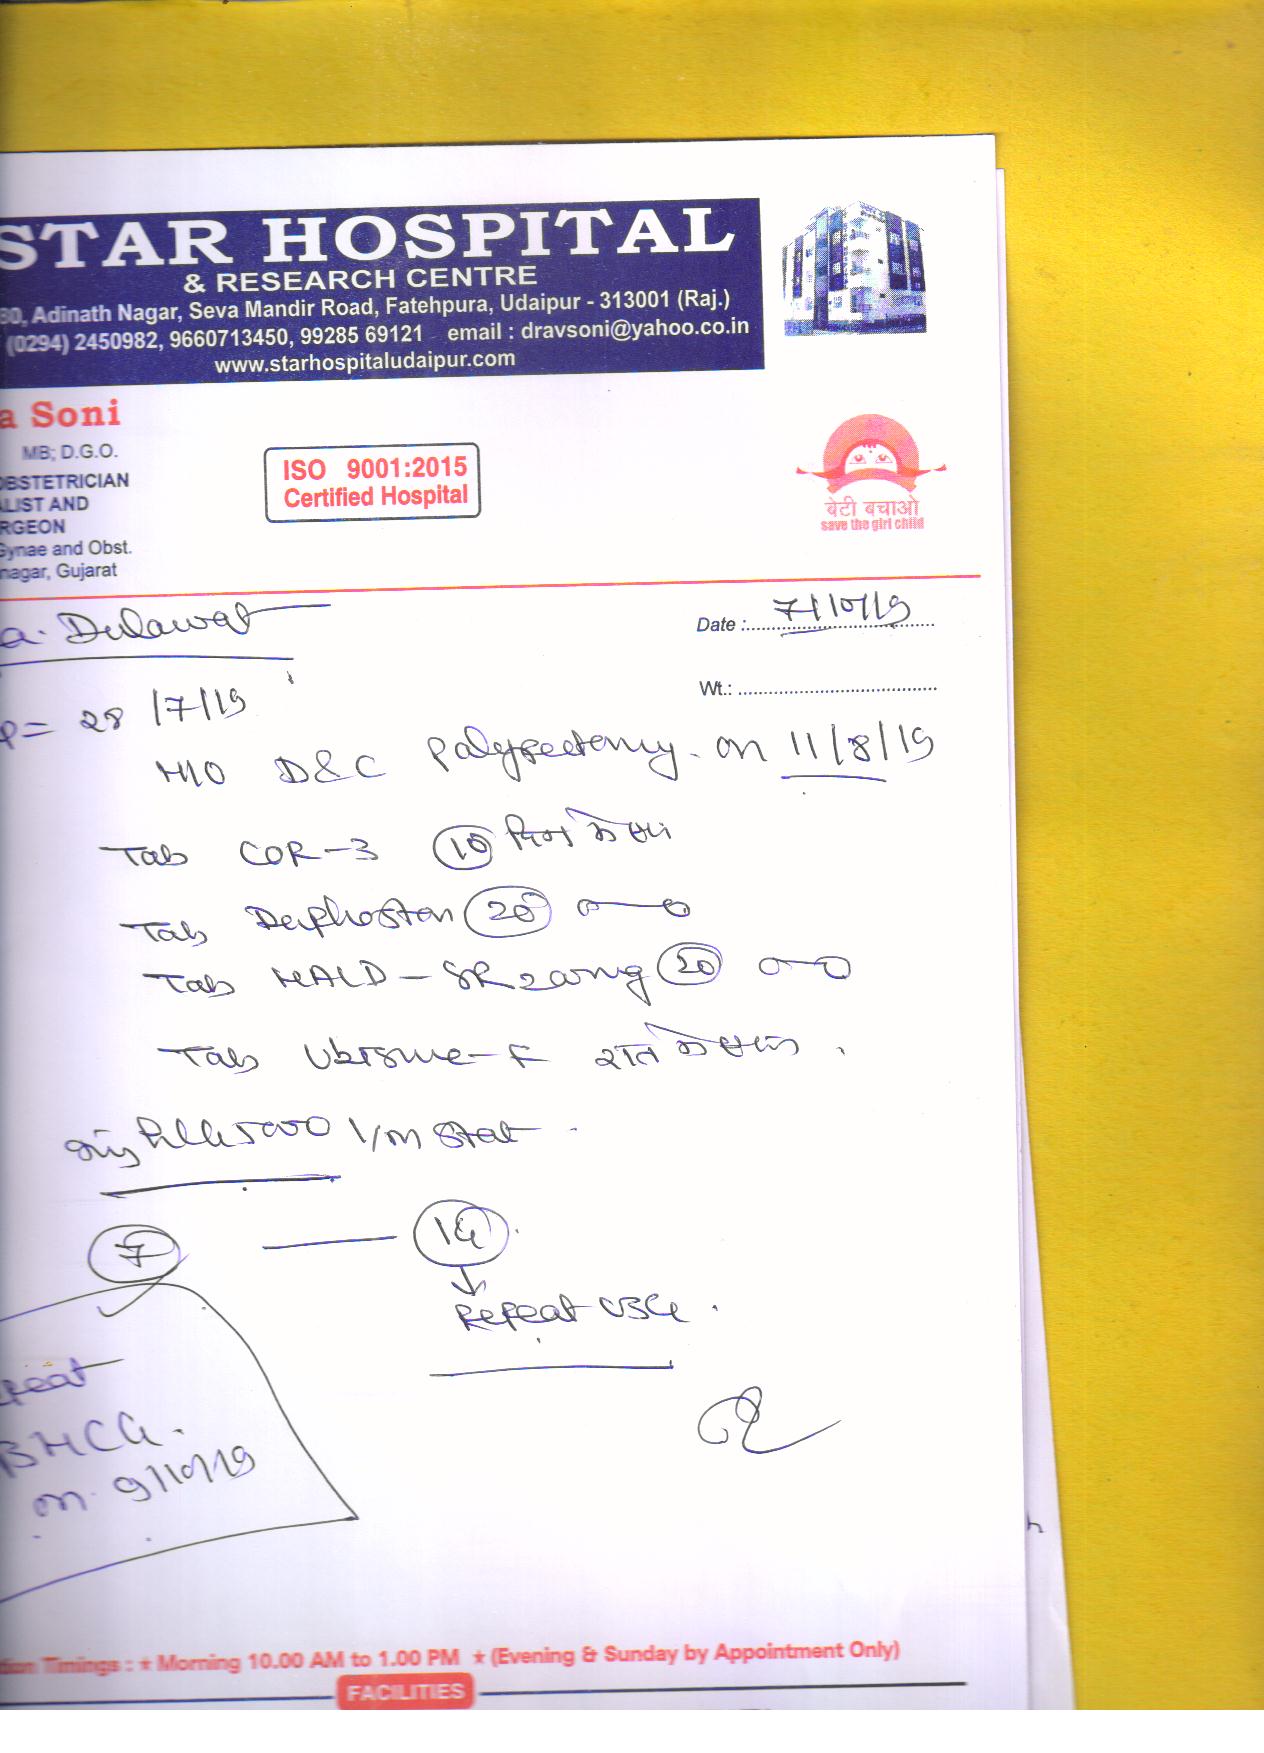 STAR HOSPITAL
& RESEARCH CENTRE
30, Adinath Nagar, Seva Mandir Road, Fatehpura, Udaipur - 313001 (Raj.)
(0294) 2450982, 9660713450, 99285 69121 email : dravsoni@yahoo.co.in
www.starhospitaludaipur.com
a Soni
MB; D.G.O.
OBSTETRICIAN
ALIST AND
RGEON
Gynae and Obst.
nagar, Gujarat
ISO 9001:2015
Certified Hospital
बेटी बचाओ
save the girl child
a. Dulawat
Date : 7/10/19
Wt.:
P = 28/7/19
H/O D&C Polypectomy on 11/8/19
Tab COR-3 10
Tab Duphaston 20
Tab HALD-SR 200mg 20
Tab
5000 I/m Stat
7 14
Repeat USG.
peat
BHCG.
on 9/10/19
tion Timings : ★ Morning 10.00 AM to 1.00 PM ★ (Evening & Sunday by Appointment Only)
FACILITIES